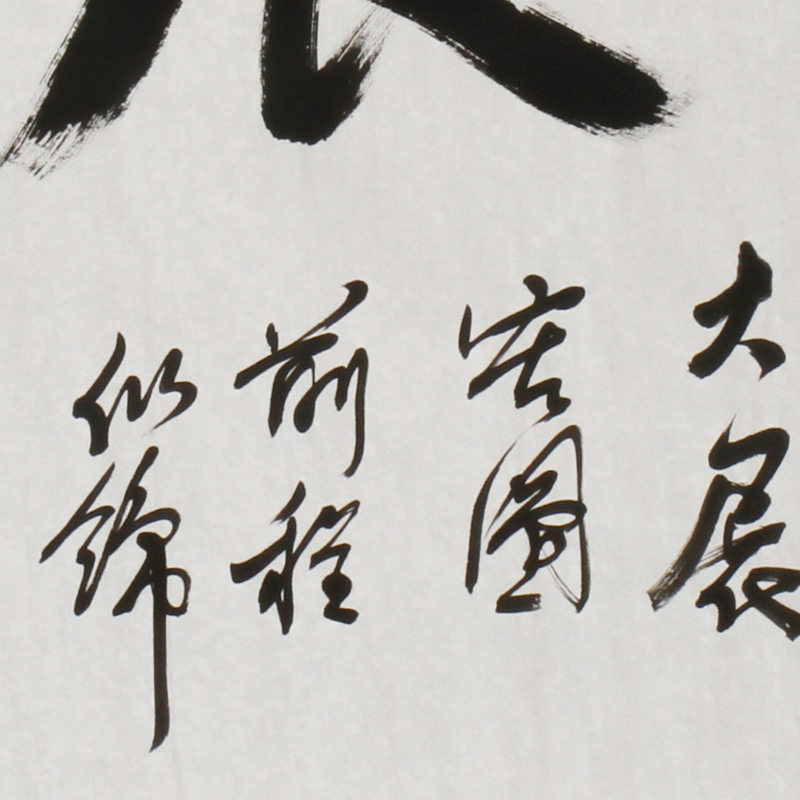 大展
宏圖
前程
似錦